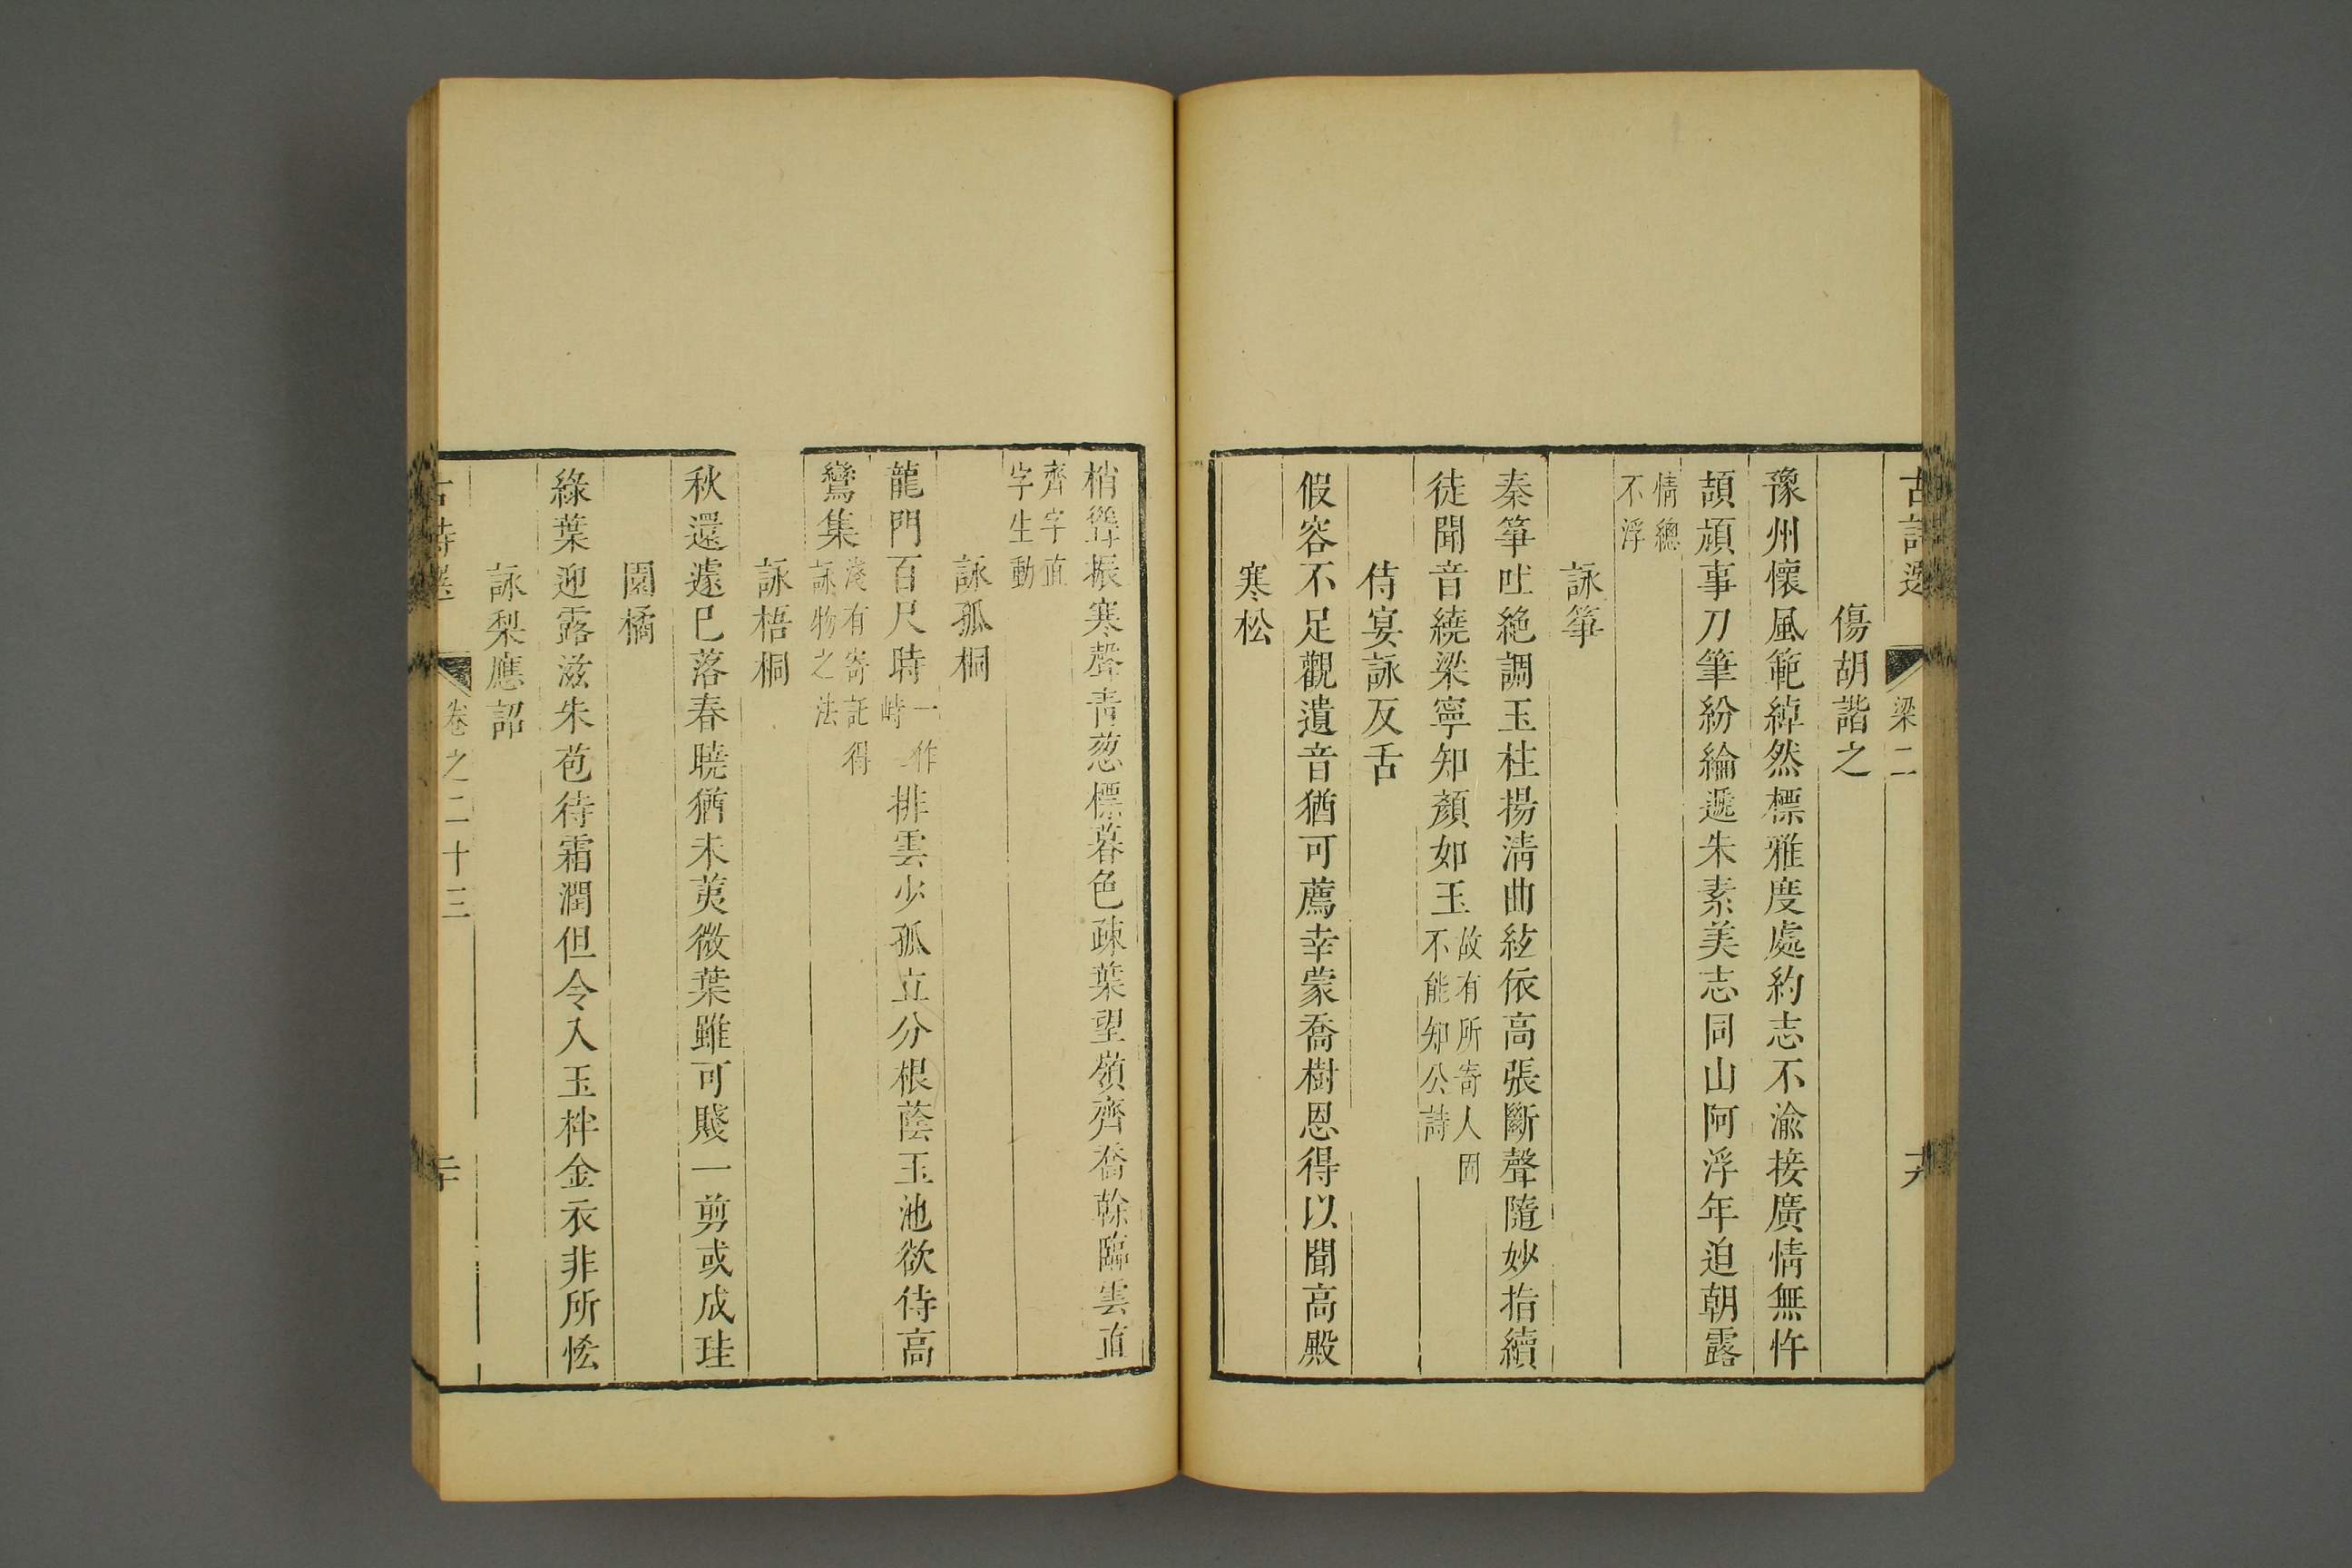 古詩選
梁二
十九
傷胡諧之
豫州懷風範綽然標雅度處約志不渝接廣情無忤
頡頏事刀筆紛綸遞朱素美志同山阿浮年迫朝露
情總
不浮
詠箏
秦箏吐絶調玉柱揚淸曲絃依高張斷聲隨妙指續
徒聞音繞梁寧知顏如玉
故有所寄人固
不能知公詩
侍宴詠反舌
假容不足觀遺音猶可薦幸蒙喬樹恩得以聞高殿
寒松
梢聳振寒聲靑葱標暮色疎葉望嶺齊喬榦臨雲直
齊字直
字生動
詠孤桐
龍門百尺時
一作
峙
排雲少孤立分根蔭玉池欲待高
鸞集
淺有寄託得
詠物之法
詠梧桐
秋還遽巳落春曉猶未荑微葉雖可賤一剪或成珪
園橘
綠葉迎露滋朱苞待霜潤但令入玉柈金衣非所恡
詠梨應詔
古詩選
卷之二十三
二十